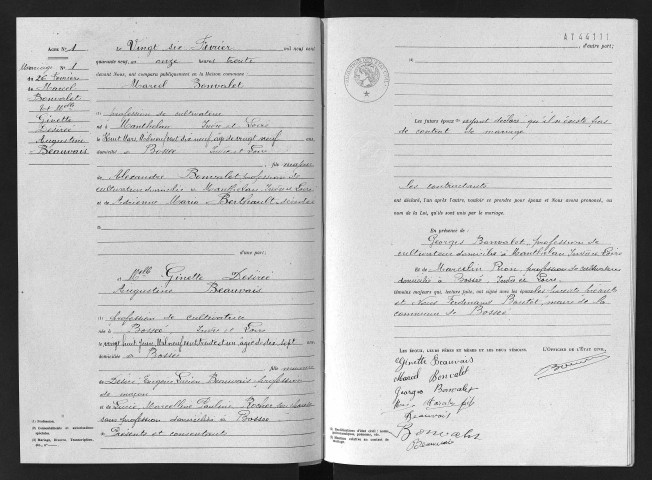 ACTE N° 1
Mariage N° 1
du 26 Février
de Marcel
Bonvalet
et Melle
Ginette
Désirée
Augustine
Beauvais
Le Vingt six Février mil neuf cent
quarante neuf, à onze heures trente
devant Nous, ont comparu publiquement en la Maison commune
Marcel Bonvalet
(1) profession de cultivateur
né à Manthelan Indre et Loire
le huit Mars mil neuf cent dix neuf, âgé de vingt neuf ans
domicilié à Bossée Indre et Loire
fils majeur
de Alexandre Bonvalet profession de
cultivateur domicilié à Manthelan Indre et Loire
et de Adrienne Maria Bertrault décédée
d'une part;
et Melle Ginette Désirée
Augustine Beauvais
(1) profession de cultivatrice
née à Bossée Indre et Loire
le vingt huit Juin mil neuf cent trente et un âgée de dix sept ans
domiciliée à Bossée
fille mineure
de Désiré Eugène Lucien Beauvais profession
de maçon
et de Lucie Marcelline Pauline Rocher son épouse
sans profession domiciliés à Bossée
(2) Présents et consentants
(1) Profession.
(2) Consentements et autorisations
spéciales.
(3) Mariage, Divorce, Transcription,
etc., d'avec...
d'autre part;
Les futurs époux ayant déclaré qu'il n'existe pas
de contrat de mariage
Les contractants
ont déclaré, l'un après l'autre, vouloir se prendre pour époux et Nous avons prononcé, au
nom de la Loi, qu'ils sont unis par le mariage.
En présence de :
Georges Bonvalet, profession de
cultivateur domicilié à Manthelan Indre et Loire
et de Marcelin Pion, profession de cultivateur
domicilié à Bossée Indre et Loire
témoins majeurs qui, lecture faite, ont signé avec les époux
et Nous Ferdinand maire de la
commune de Bossée
LES ÉPOUX, LEURS PÈRES ET MÈRES ET LES DEUX TÉMOINS,
L'OFFICIER DE L'ÉTAT CIVIL,
Ginette Beauvais
Marcel Bonvalet
Georges Bonvalet
Beauvais
Bonvalet
Beauvais